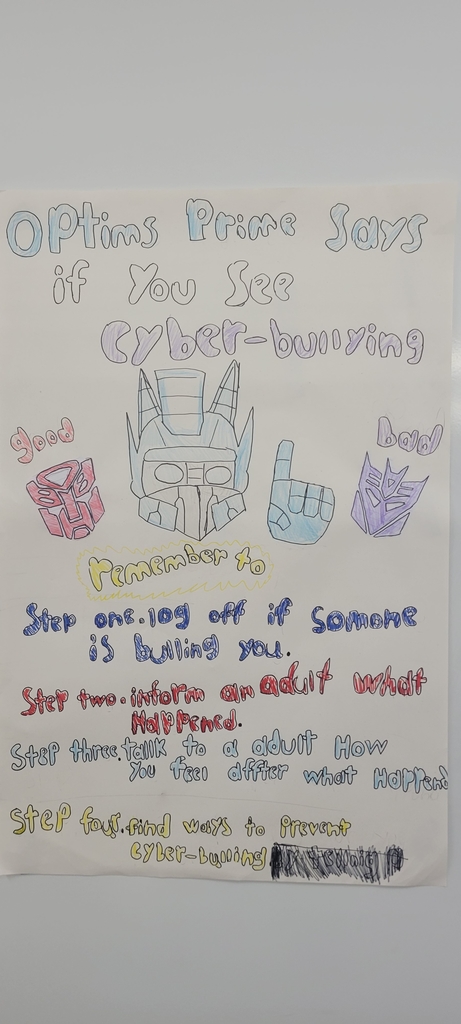 OPtims Prime Says
if You See
cyber-bullying
good
bad
remember to
Step one.log off if Somone
is bulling you.
Step two.inform an adult what
HaPPened.
Step three.tallk to a adult How
You feel affter what HaPPend
Step four.find ways to Prevent
cyber-bulling